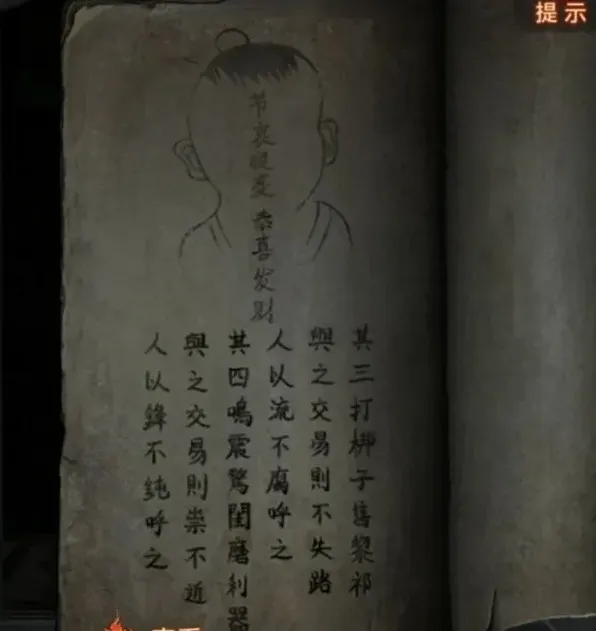 提示
节哀顺变 恭喜发财
其三打梆子售黎祁
與之交易則不失路
人以流不腐呼之
其四鳴震驚閨磨利器
與之交易則祟不近
人以鋒不純呼之